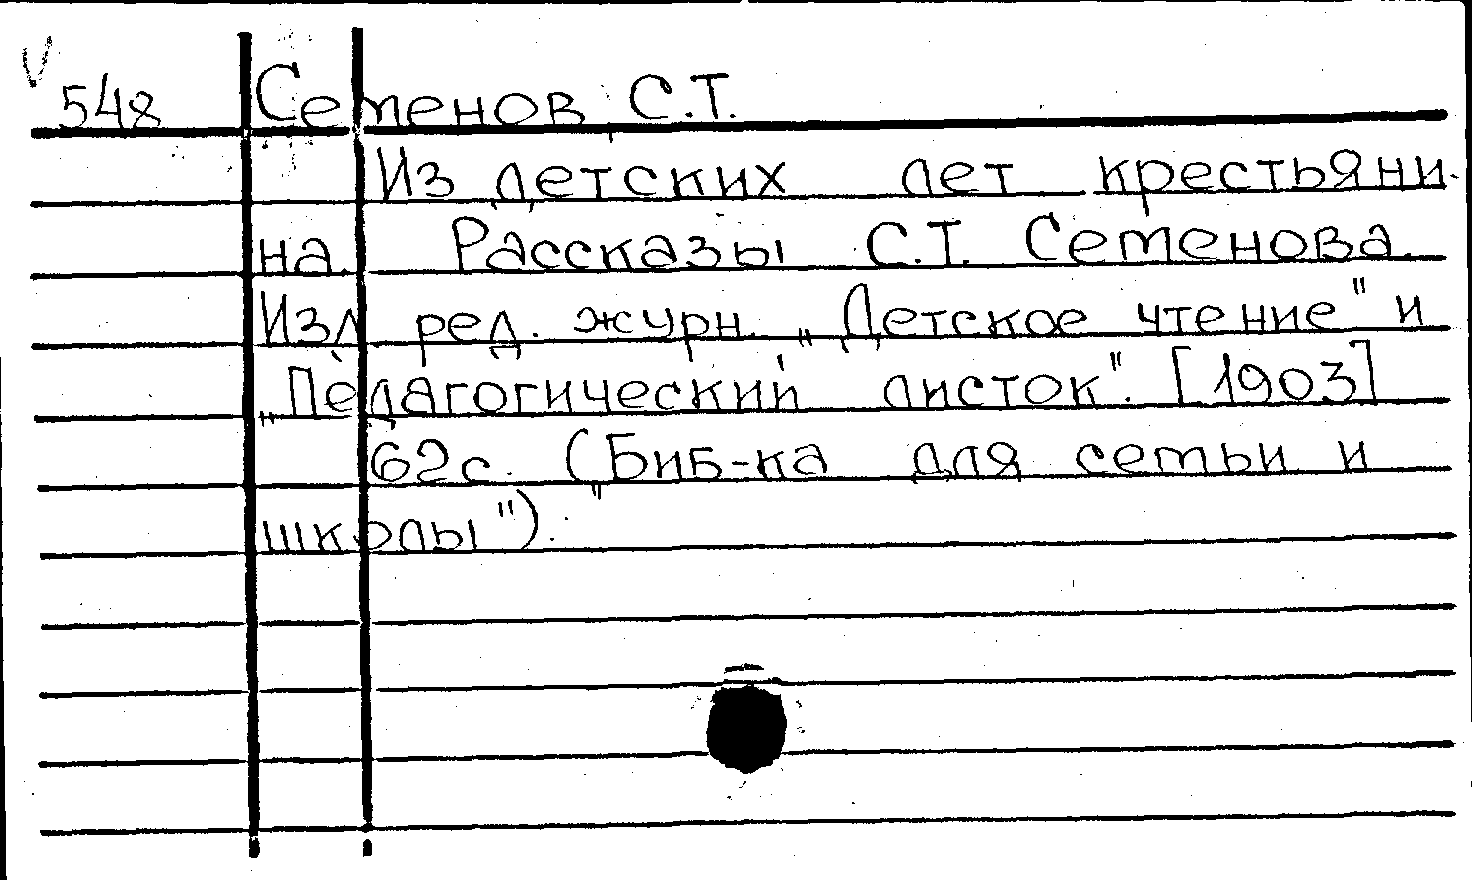 548 Семенов, С.Т.
Из детских лет крестьяни-
на. Рассказы С.Т. Семенова.
Изд. ред. журн. „Детское чтение" и
„Педагогический листок". [1903]
62с. (Биб-ка для семьи и
школы").